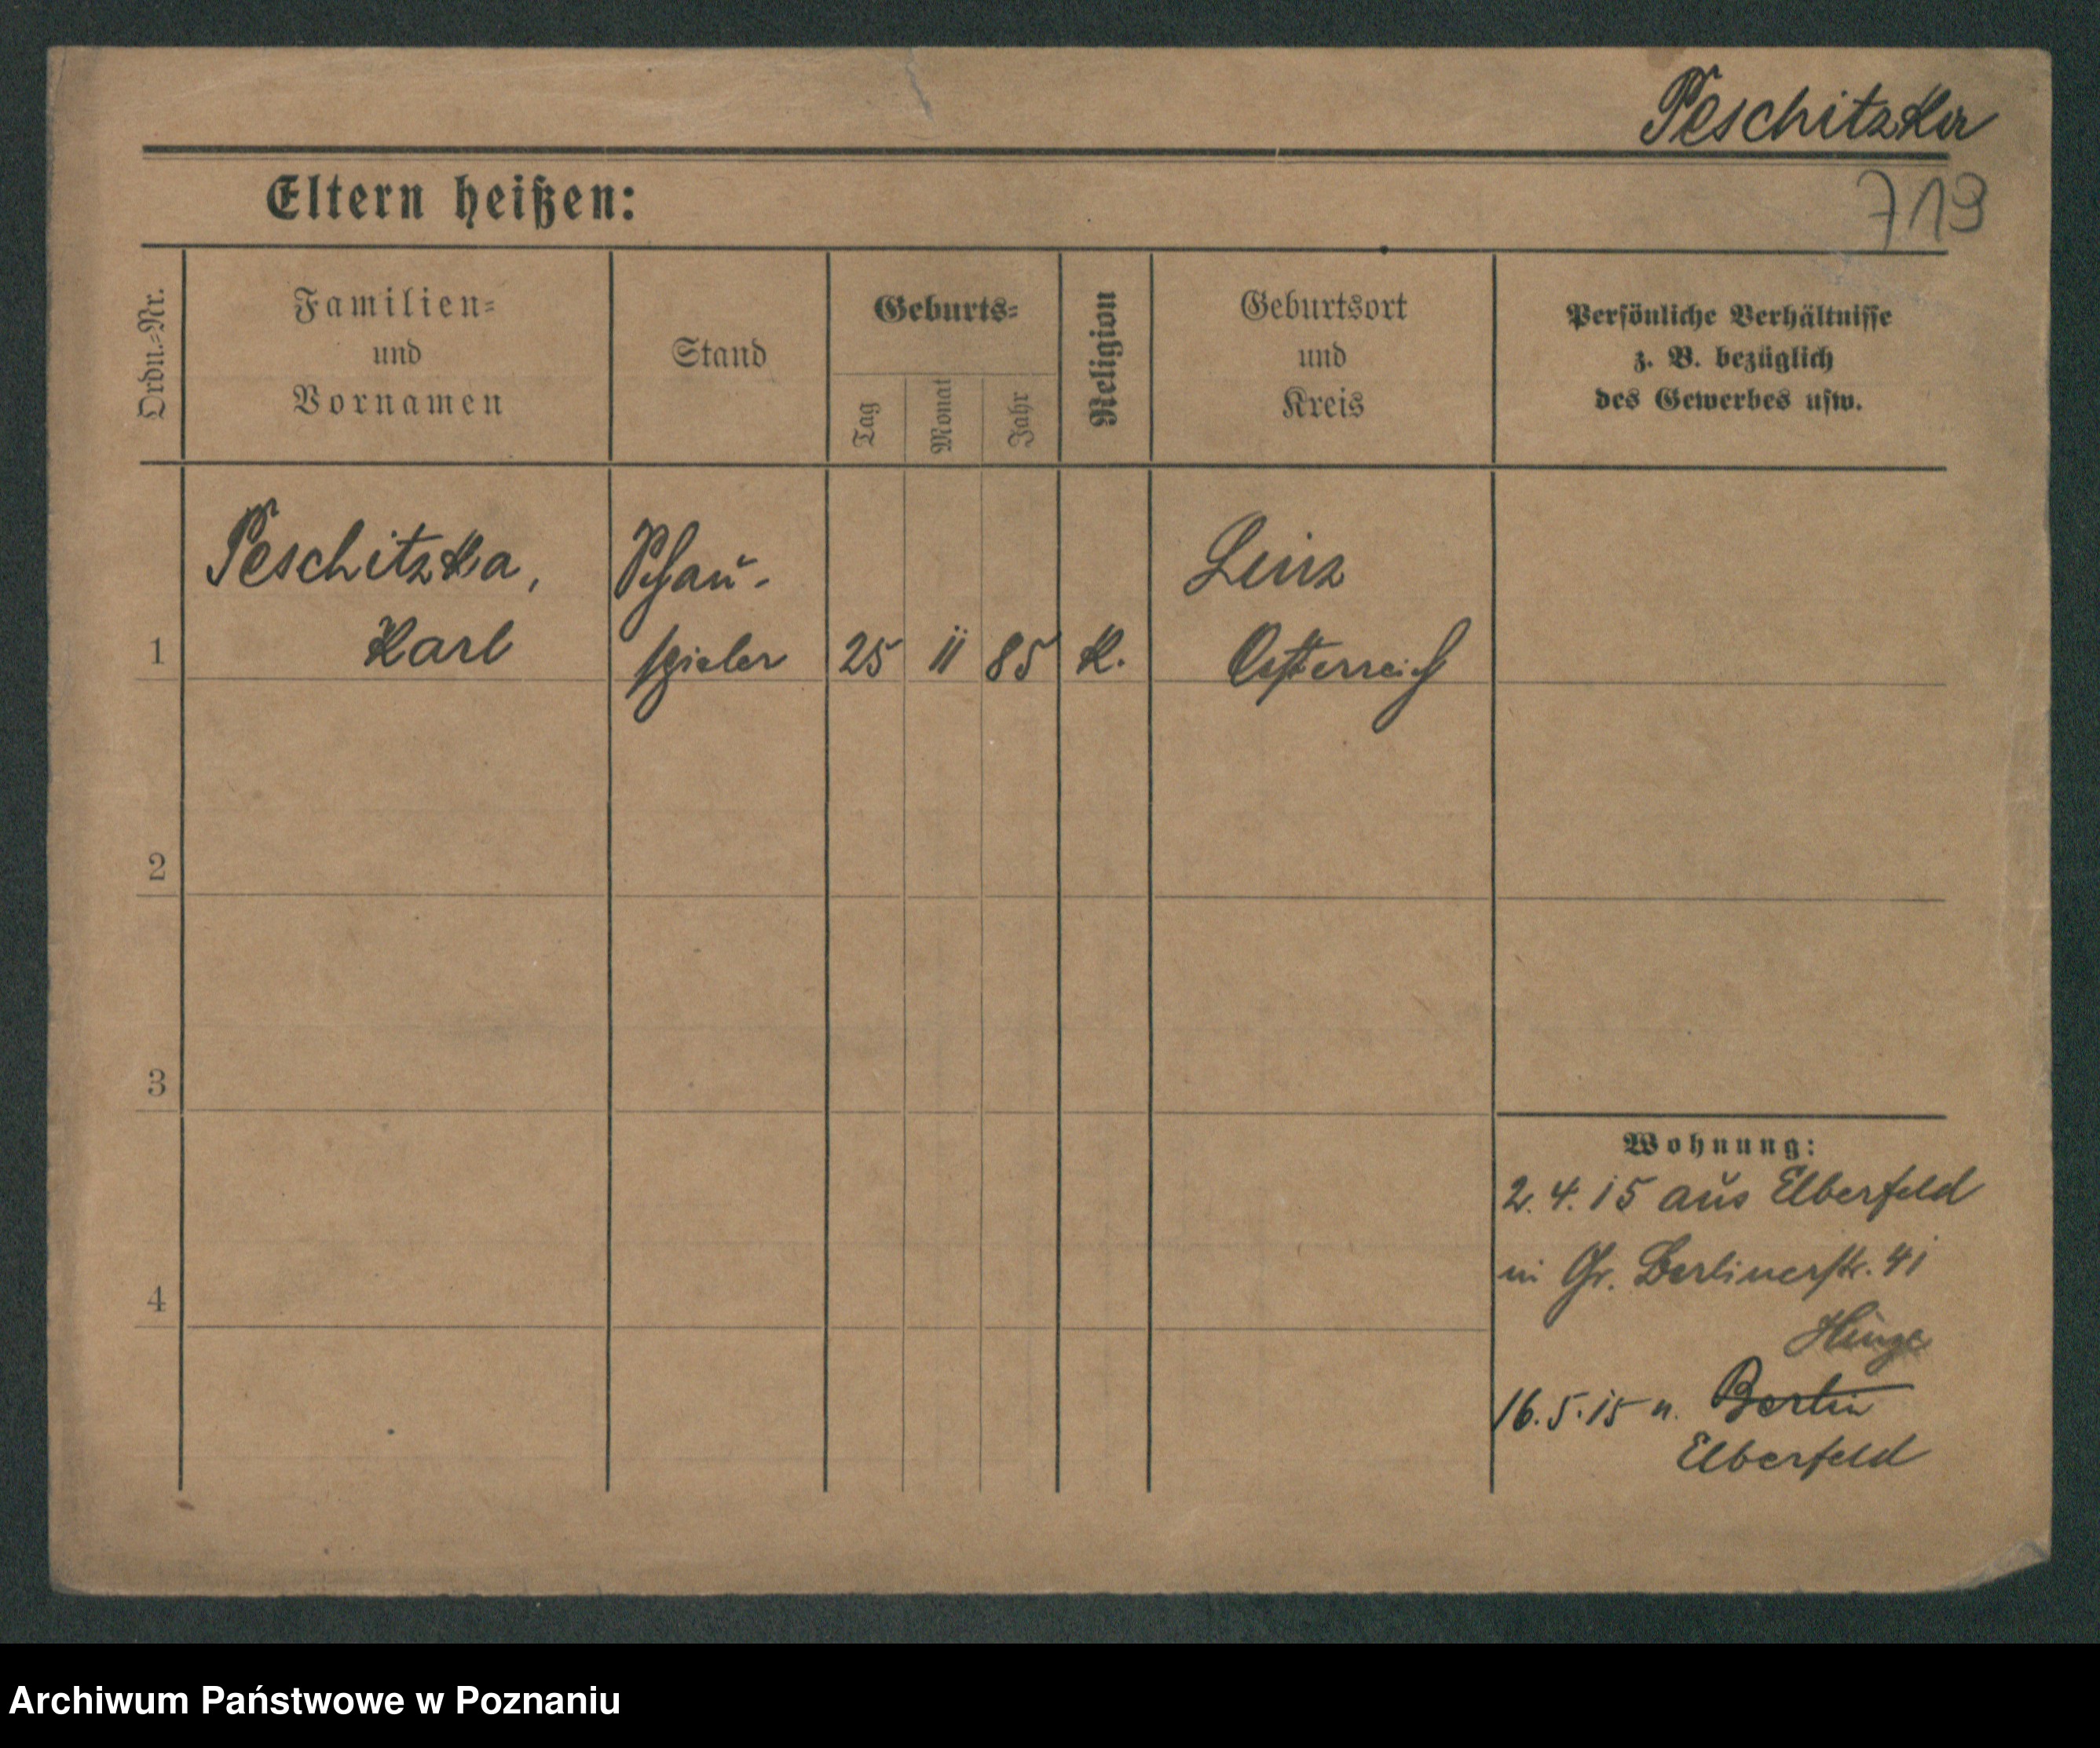 Peschitzka
719
Eltern heißen:
Ordn.-Nr.
Familien-
und
Vornamen
Stand
Geburts-
Tag
Monat
Jahr
Religion
Geburtsort
und
Kreis
Persönliche Verhältnisse
z. B. bezüglich
des Gewerbes usw.
Peschitzka, Schau- Linz
1 Karl spieler 25 11 85 K. Oesterreich
2
3
4
Wohnung:
2.4.15 aus Elberfeld
in Gr. Berlinerstr. 41
16.5.15 n. Berlin
Elberfeld
Archiwum Państwowe w Poznaniu